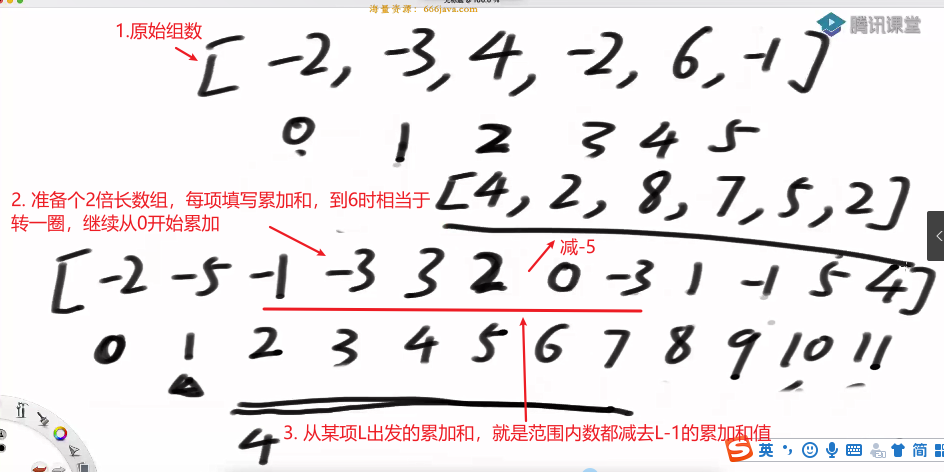 海量资源：666java.com
腾讯课堂
1.原始组数
[-2, -3, 4, -2, 6, -1]
0 1 2 3 4 5
2. 准备个2倍长数组，每项填写累加和，到6时相当于
转一圈，继续从0开始累加
[4, 2, 8, 7, 5, 2]
减-5
[-2 -5 -1 -3 3 2 0 -3 1 -1 5 4]
0 1 2 3 4 5 6 7 8 9 10 11
4
3. 从某项L出发的累加和，就是范围内数都减去L-1的累加和值
英 简